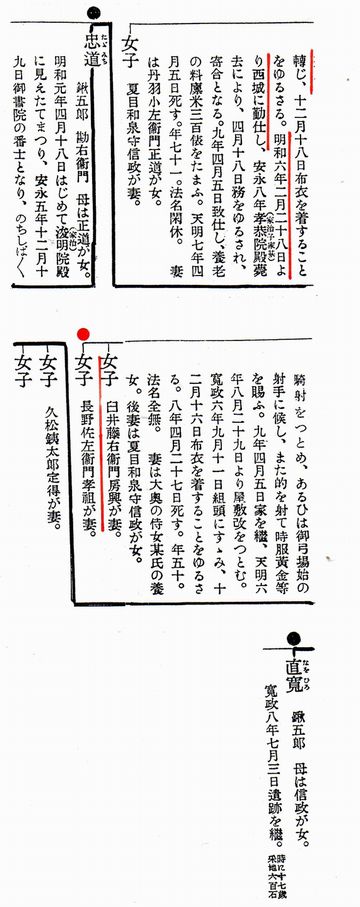 轉じ、十二月十八日布衣を着すること
をゆるさる。明和六年二月二十八日よ
り西城に勤仕し、安永八年孝恭院殿(家治子家基)薨
去により、四月十八日務をゆるされ、
寄合となる。九年四月五日致仕し、養老
の料廩米三百俵をたまふ。天明七年四
月五日死す。年七十一。法名閑休。 妻
は丹羽小左衞門正道が女。
女子 夏目和泉守信政が妻。
忠道 たゞみち
鍬五郎 勘右衞門 母は正道が女。
明和元年四月十八日はじめて浚明院殿(家治)
に見えたてまつり、安永五年十二月十
九日御書院の番士となり、のちしば〱
騎射をつとめ、あるひは御弓場始の
射手に候し、また的を射て時服黃金等
を賜ふ。九年四月五日家を繼、天明六
年八月二十九日より屋敷改をつとむ。
寬政六年九月十一日組頭にすゝみ、十
二月十六日布衣を着することをゆるさ
る。八年四月二十七日死す。年五十。
法名全無。 妻は大奧の侍女某氏の養
女。後妻は夏目和泉守信政が女。
女子 臼井藤右衞門房興が妻。
女子 長野佐左衞門孝祖が妻。
女子 久松銕太郎定得が妻。
女子
直寬 なをひろ
鍬五郎 母は信政が女。
寬政八年七月三日遺跡を繼。時に十七歲 采地六百石